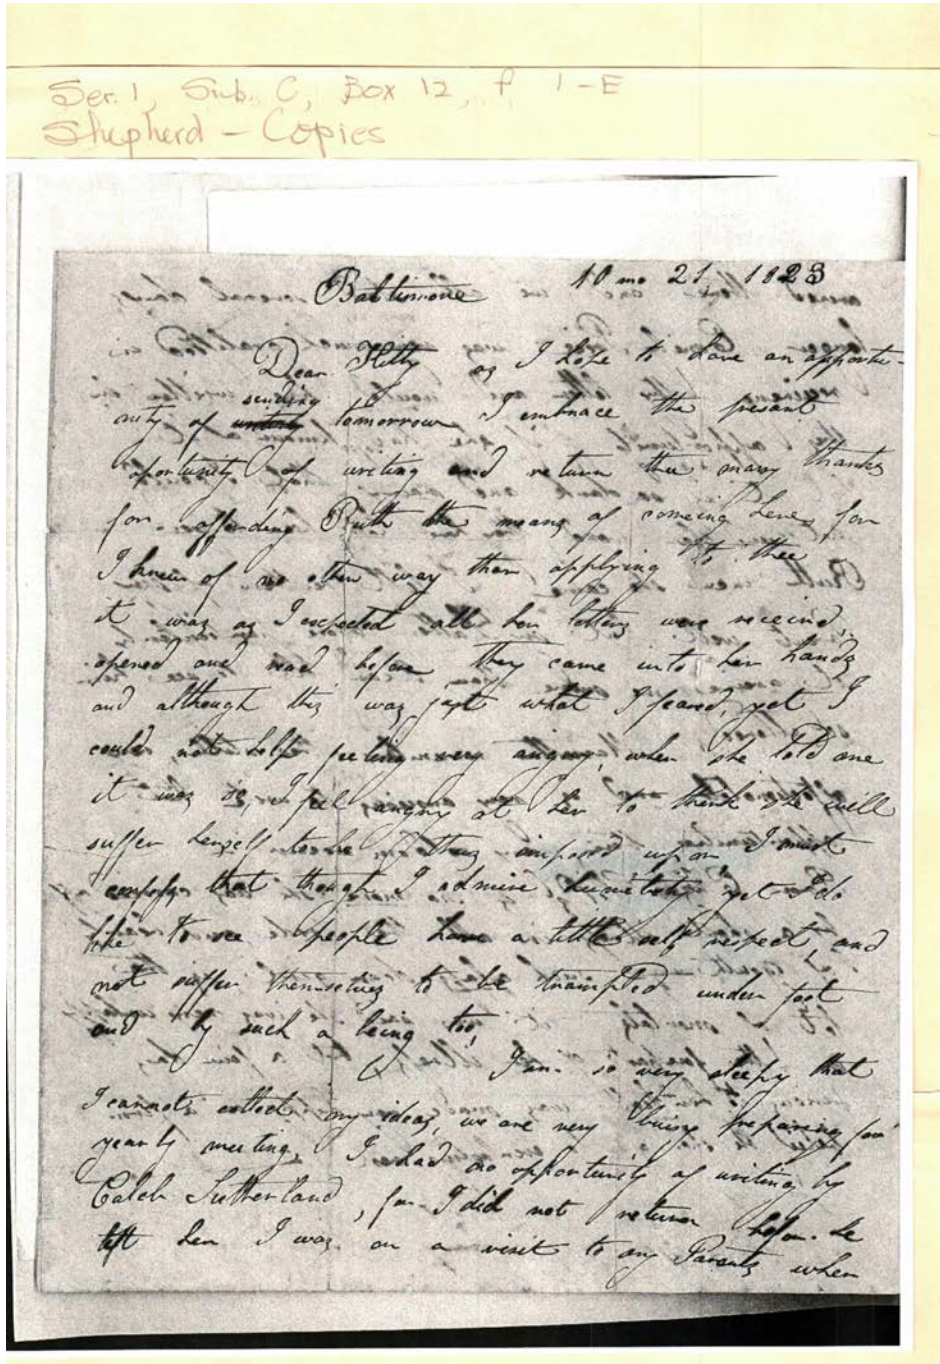 Ser. 1, Sub. C, Box 12, f 1-E
Shepherd - Copies
Baltimore 10 mo 21 1823
Dear Kitty as I hope to have an opportu-
nity of sending tomorrow I embrace the present
oportunity of writing and return thee many thanks
for affording Ruth the means of comeing here, for
I knew of no other way than applying to thee
it was as I expected all her letters were receivd,
opened and read before they came into her hands
and although this was just what I feared, yet I
could not help feeling very angry, when she told me
it was so, I feel angry at her to think she will
suffer herself to be thus imposed upon I must
confess that though I admire humility, yet I do
like to see people have a little self respect, and
not suffer themselves to be trampled under foot
and by such a being too,
I am so very sleepy that
I cannot collect my ideas, we are very buisy prepareing for
yearly meeting, I had no opportunity of writing by
Caleb Sutherland, for I did not return before he
left here I was on a visit to my Parents when